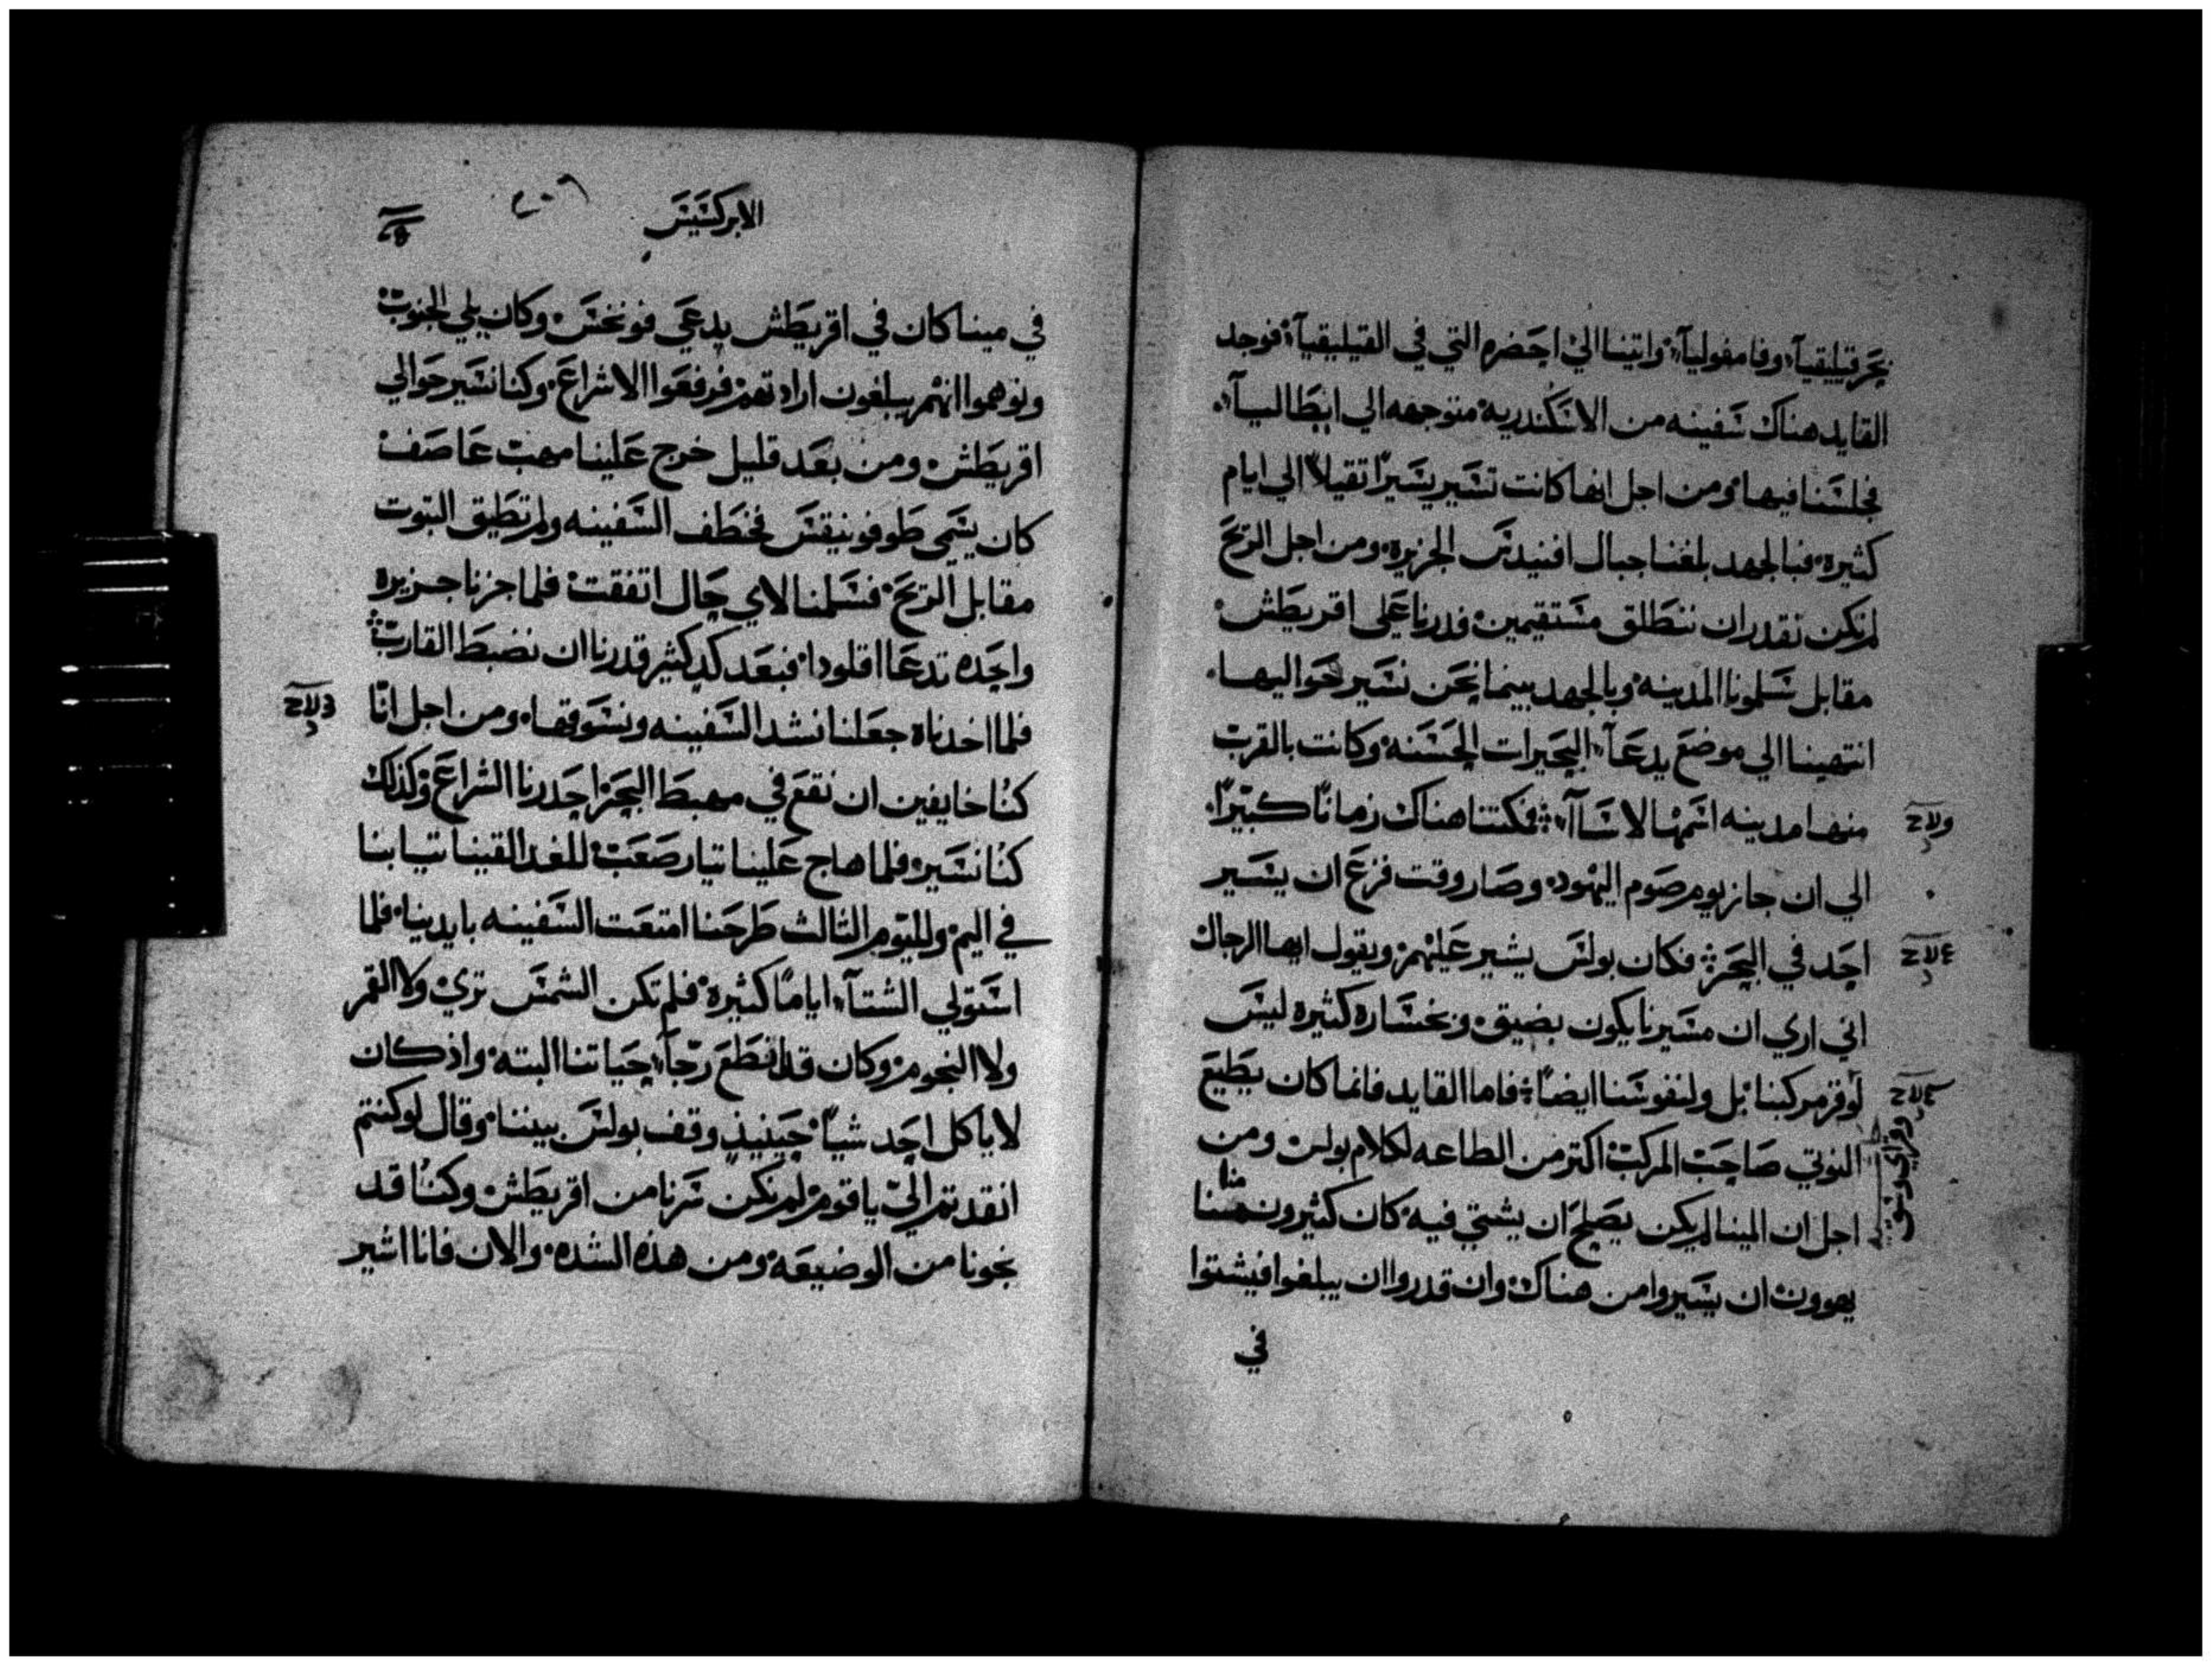 بحر قيليقيآ، وفامفوليآ، واتينا الي احضره التي في القيليقيآ، فوجد
القايد هناك سفينه من الاسكندريه متوجهه الي ايطاليآ،
فجلسنا فيها، ومن اجل انها كانت تسير يسيرًا تقيلاً الي ايام
كثيره، فبالجهد بلغنا جبال افنيدس الجزيره، ومن اجل الريح
لم نكن نقدر ان ننطلق مستقيمين فدرنا علي اقريطش
مقابل سلمونا المدينه وبالجهد بينما نحن نسير حواليها،
انتهينا الي موضع يدعآ، البحيرات الحسنه وكانت بالقرب
منها مدينه اسمها لاسآآ، فمكتنا هناك زمانًا كبيرًا،
الي ان جاز يوم صوم اليهود، وصار وقت فزع ان يسير
احد في البحر فكان بولس يشير عليهم ويقول ايها الرجال
اني اري ان مسيرنا يكون بضيق، وبخساره كثيره ليس
لوقر مركبنا بل ولنفوسنا ايضًا، فاما القايد فانما كان يطيع
النوتي صاحب المركب اكتر من الطاعه لكلام بولس ومن
اجل ان المينا لم يكن يصلح ان يشتي فيه كان كثيرون منا
يهوون ان يسيروا من هناك وان قدروا ان يبلغوا فيشتوا
في
الابركسيس
٢٠٦
في مينا كان في اقريطش يدعي فونخس، وكان يلي الجنوب
وتوهموا انهم يبلغون ارادتهم فرفعوا الاشراع، وكنا نسير حوالي
اقريطش، ومن بعد قليل خرج علينا مهب عاصف
كان يسمي طوفونيقس فخطف السفينه ولم تطيق التبوت
مقابل الريح، فسلمنا لاي حال اتفقت فلما جزنا جزيره
واحده تدعا اقلودا، فبعد كد كثير قدرنا ان نضبط القارب
فلما اخدناه جعلنا نشد السفينه ونسوقها، ومن اجل انّا
كنُا خايفين ان نقع في مهبط البحر احدرنا الشراع وكذلك
كنُا نسير، فلما هاج علينا تيار صعب للغد القينا تيابنا
في اليم، ولليوم الثالث طرحنا امتعت السفينه بايدينا، فلما
استولي الشتآ، ايامًا كثيره فلم تكن الشمس تري ولا القمر
ولا النجوم، وكان قد انقطع رجآ، حياتنا البته، واذ كان
لا ياكل احد شيًا حينيذٍ وقف بولس بيننا، وقال لو كنتم
انقدتم اليّ يا قوم لم نكن سرنا من اقريطش، وكنُا قد
نجونا من الوضيعه، ومن هذه الشده، والان فانا اشير